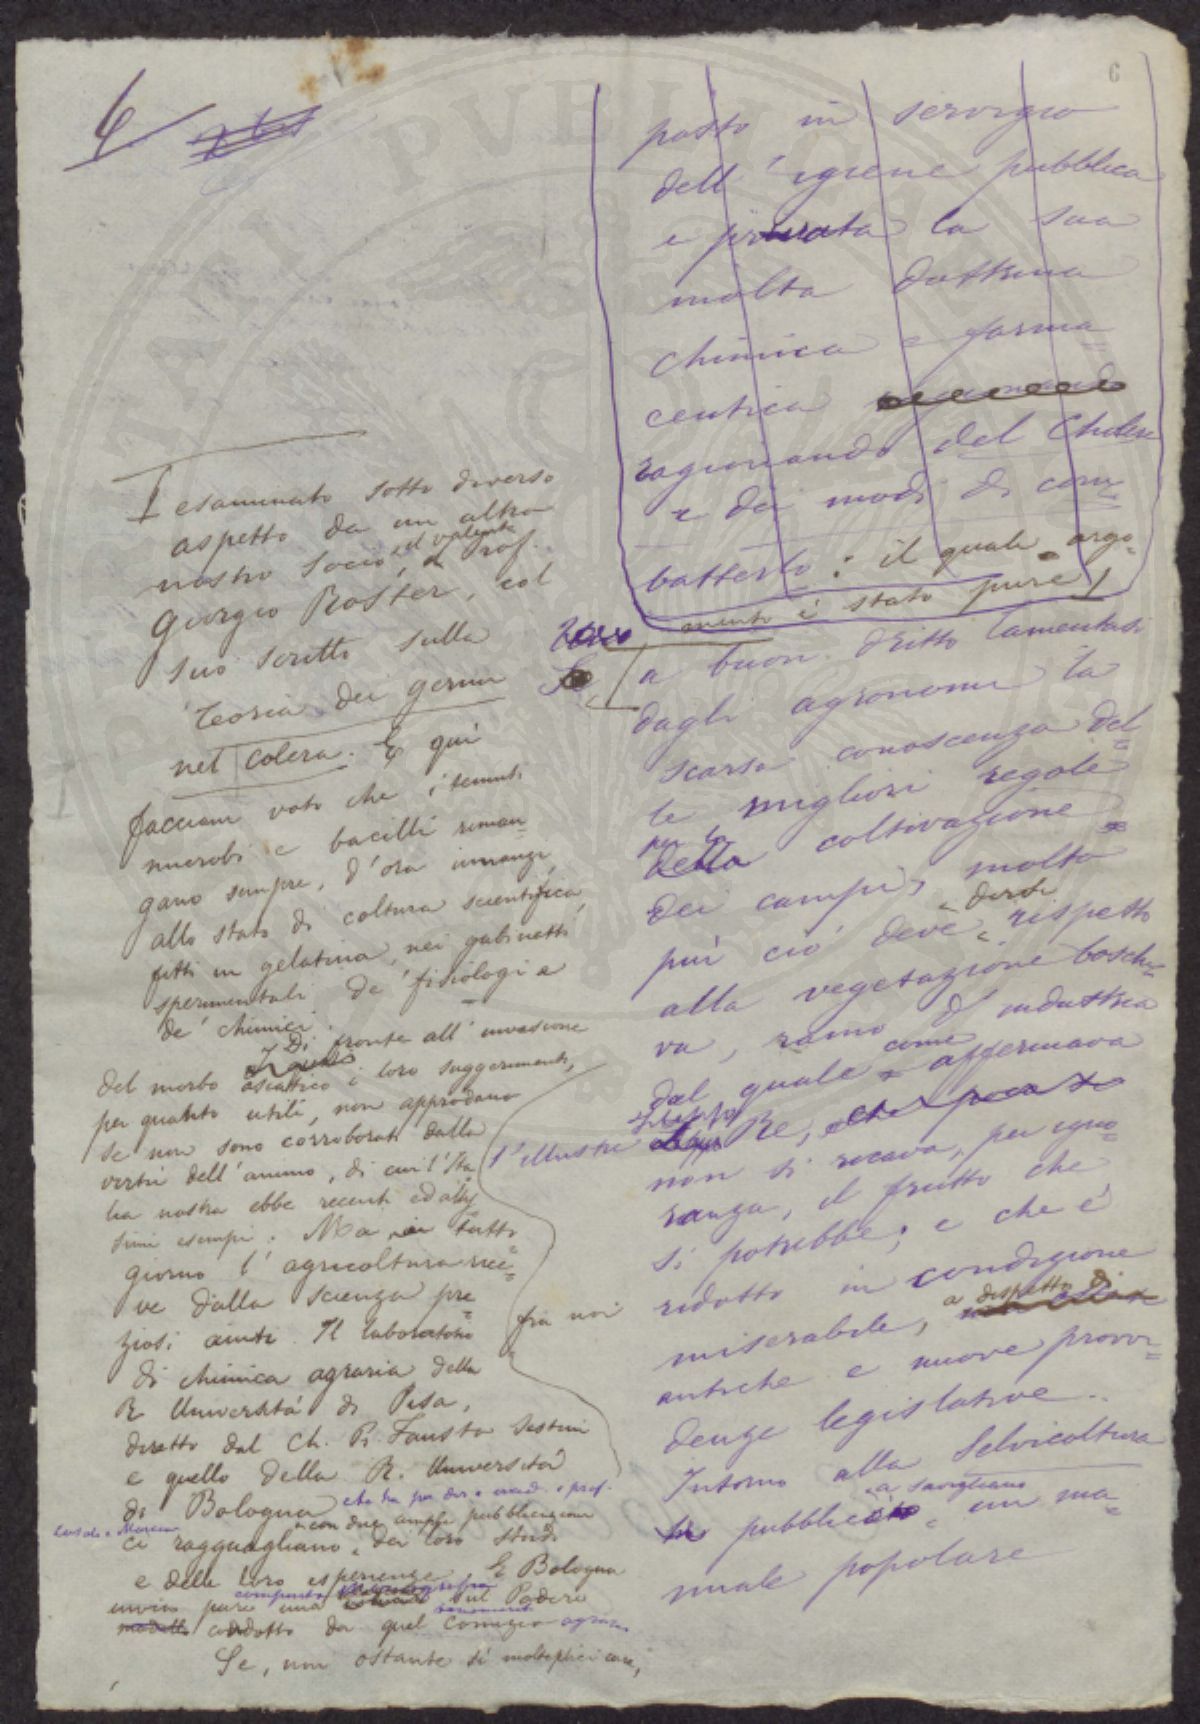 6
4
posto in servigio
dell'igiene pubblica
e privata la sua
molta dottrina
chimica e farma=
ceutica
ragionando del Cholera
e dei modi di com=
batterlo: il quale argo=
mento è stato pure
esaminato sotto diverso
aspetto da un altro
nostro socio, il valente Prof.
Giorgio Roster, col
suo scritto sulla
Teoria dei germi
nel colera. E qui
facciam voto che i temuti
microbi e bacilli riman=
gano sempre, d'ora innanzi,
allo stato di coltura scientifica,
fitti in gelatina, nei gabinetti
sperimentali de' fisiologi e
de' chimici.
Di fronte all'invasione
del morbo asiatico i loro suggerimenti,
per quanto utili, non approdano
se non sono corroborati dalla
virtù dell'animo, di cui l'Ita
lia nostra ebbe recenti ed altis
simi esempi. Ma in tutto
giorno l'agricoltura rice=
ve dalla scienza pre=
ziosi aiuti. Il laboratorio
di chimica agraria della
R. Università di Pisa,
diretto dal Ch. P. Fausto Sestini
e quello della R. Università
di Bologna che ha per dir. e prof.
con due ampie pubblicazioni
ci ragguagliano dei loro studi
e delle loro esperienze. E Bologna
invia pure una compiuta monografia sul Podere
condotto da quel Comizio agrario
Se, non ostante sì molteplici cure,
fra noi
a buon dritto lamentasi
dagli agronomi la
scarsa conoscenza del=
le migliori regole
per la coltivazione
dei campi, molto
più ciò deve dirsi rispetto
alla vegetazione boschi=
va, ramo d'industria
dal quale come affermava
l'illustre Filippo Re,
non si recava, per igno=
ranza, il frutto che
si potrebbe; e che è
ridotto in condizione
miserabile, a dispetto di
antiche e nuove provvi=
denze legislative.
Intorno alla Selvicoltura
pubblicò a Savigliano un ma=
nuale popolare